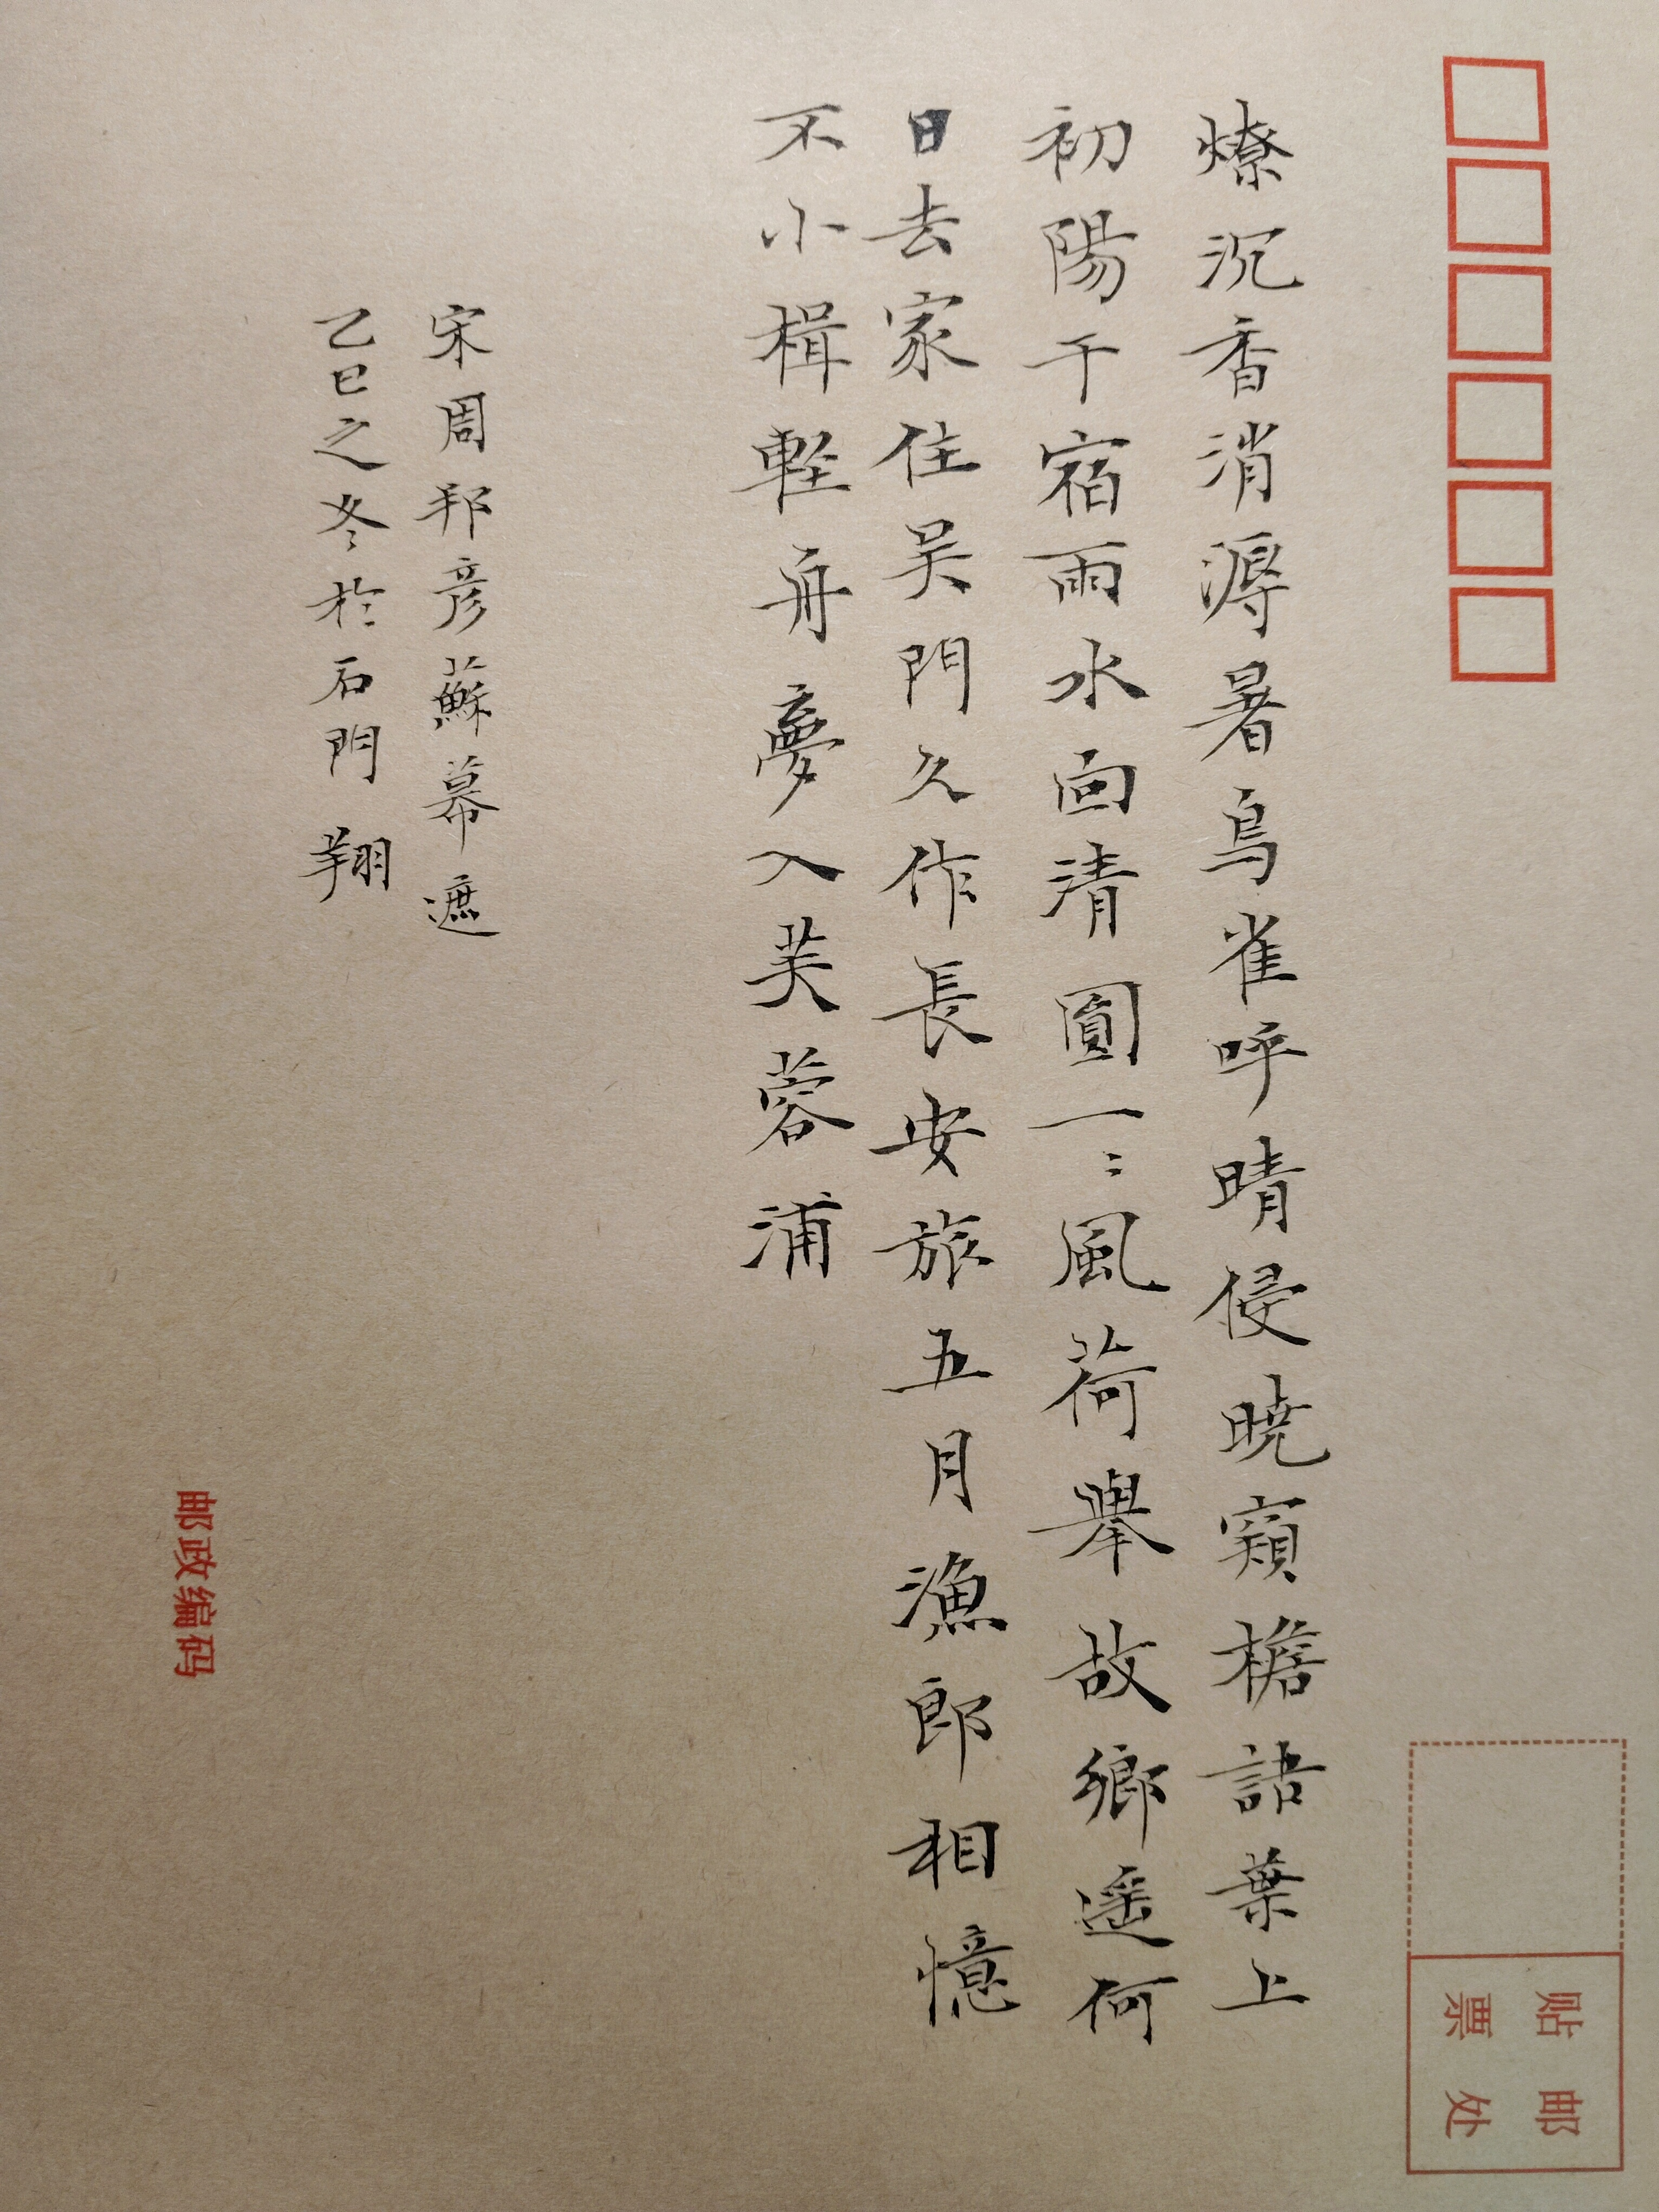 燎沉香消溽暑鳥雀呼晴侵暁窺檐語葉上
初陽干宿雨水面清圓一〻風荷舉故鄉遥何
日去家住吴門久作長安旅五月漁郎相憶
不小楫軽舟夢入芙蓉浦
宋周邦彦蘇幕遮
乙巳之冬於石門 翔
贴邮
票处
邮政编码